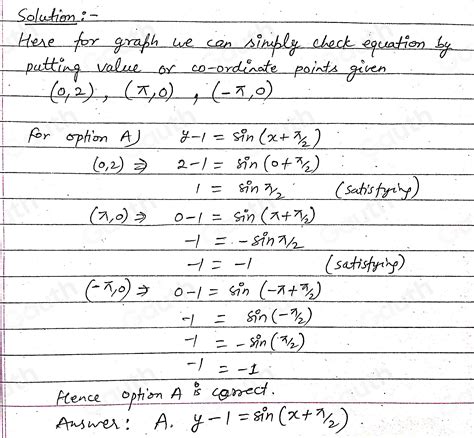 Solution :-
Here for graph we can simply check equation by
putting value or co-ordinate points given
(0,2) , (π,0) , (-π,0)
For option A) y-1 = sin(x+π/2)
(0,2) ⇒ 2-1 = sin(0+π/2)
1 = sin π/2 (satisfying)
(π,0) ⇒ 0-1 = sin(π+π/2)
-1 = -sin π/2
-1 = -1 (satisfying)
(-π,0) ⇒ 0-1 = sin(-π+π/2)
-1 = sin(-π/2)
-1 = -sin(π/2)
-1 = -1
Hence option A is correct.
Answer: A. y-1 = sin(x+π/2)